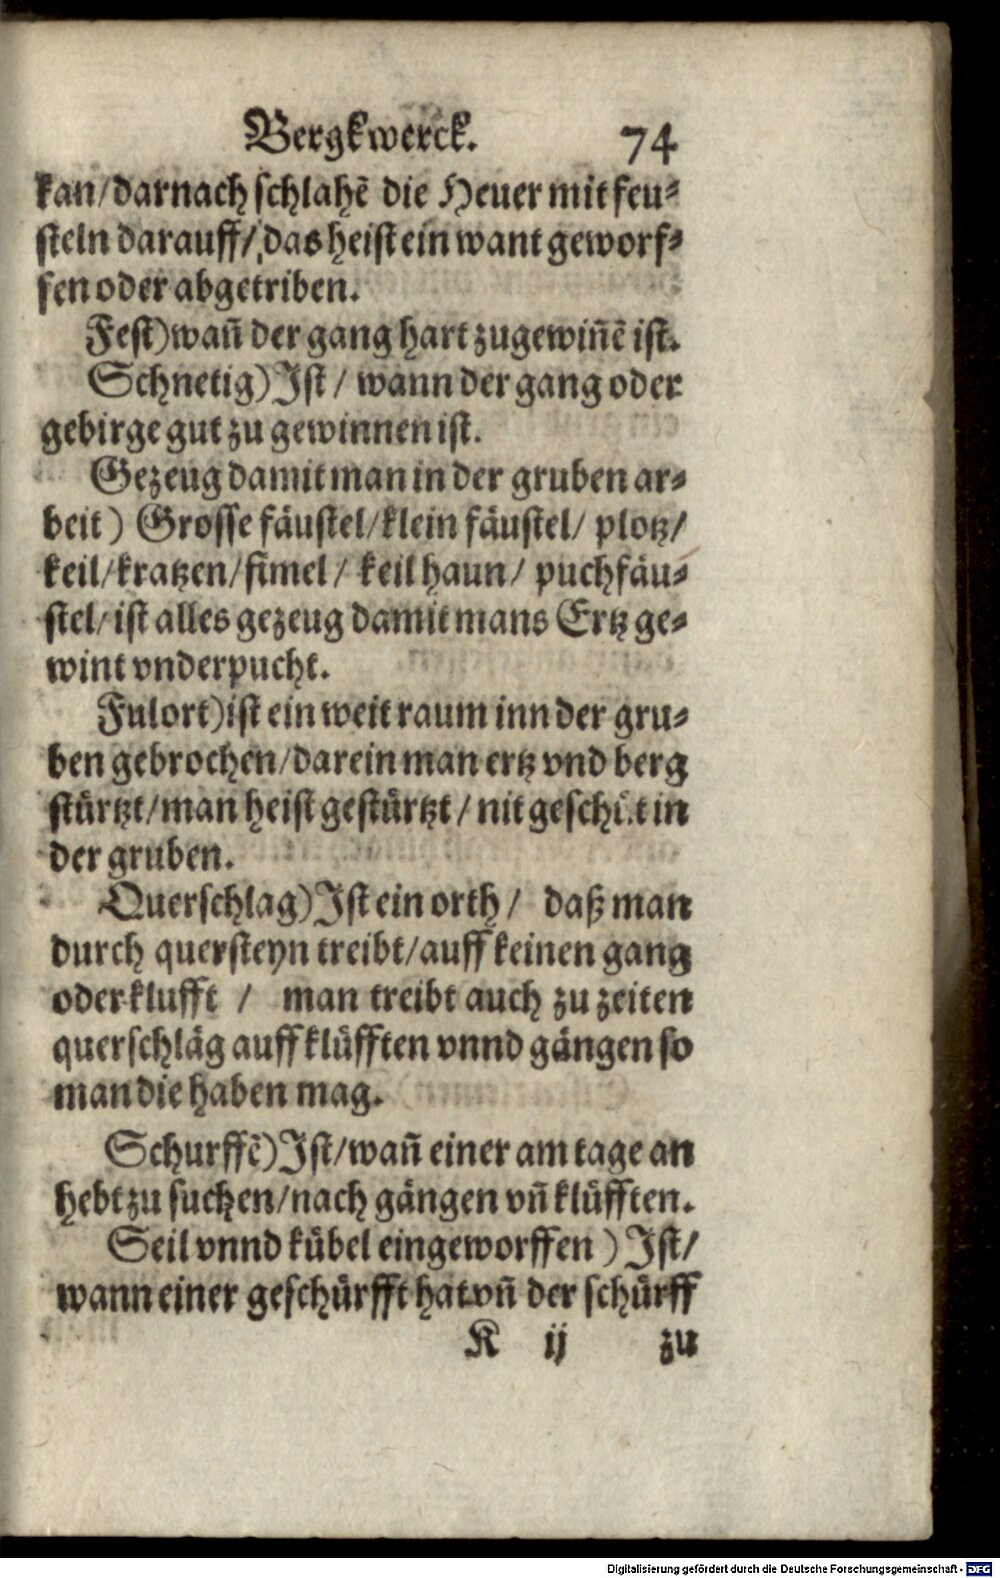 Bergkwerck. 74
kan/darnach schlahẽ die Heuer mit feu⸗
steln darauff/das heist ein want geworf⸗
fen oder abgetriben.
Fest)wañ der gang hart zugewiñẽ ist.
Schnetig)Ist/ wann der gang oder
gebirge gut zu gewinnen ist.
Gezeug damit man in der gruben ar⸗
beit) Grosse fäustel/klein fäustel/ plotz/
keil/kratzen/fimel/ keilhaun/ puchfäu⸗
stel/ist alles gezeug damit mans Ertz ge⸗
wint vnderpucht.
Fulort)ist ein weit raum inn der gru⸗
ben gebrochen/darein man ertz vnd berg
stürtzt/man heist gestürtzt/nit in
der gruben.
Querschlag)Ist ein orth/ daß man
durch quersteyn treibt/auff keinen gang
oder klufft / man treibt auch zu zeiten
querschläg auff klüfften vnnd gängen so
man die haben mag.
Schurffẽ)Ist/wañ einer am tage an
hebt zu suchen/nach gängen vñ klüfften.
Seil vnnd kübel eingeworffen) Ist/
wann einer geschürfft hat vñ der schürff
K ij zu
Digitalisierung gefördert durch die Deutsche Forschungsgemeinschaft - DFG